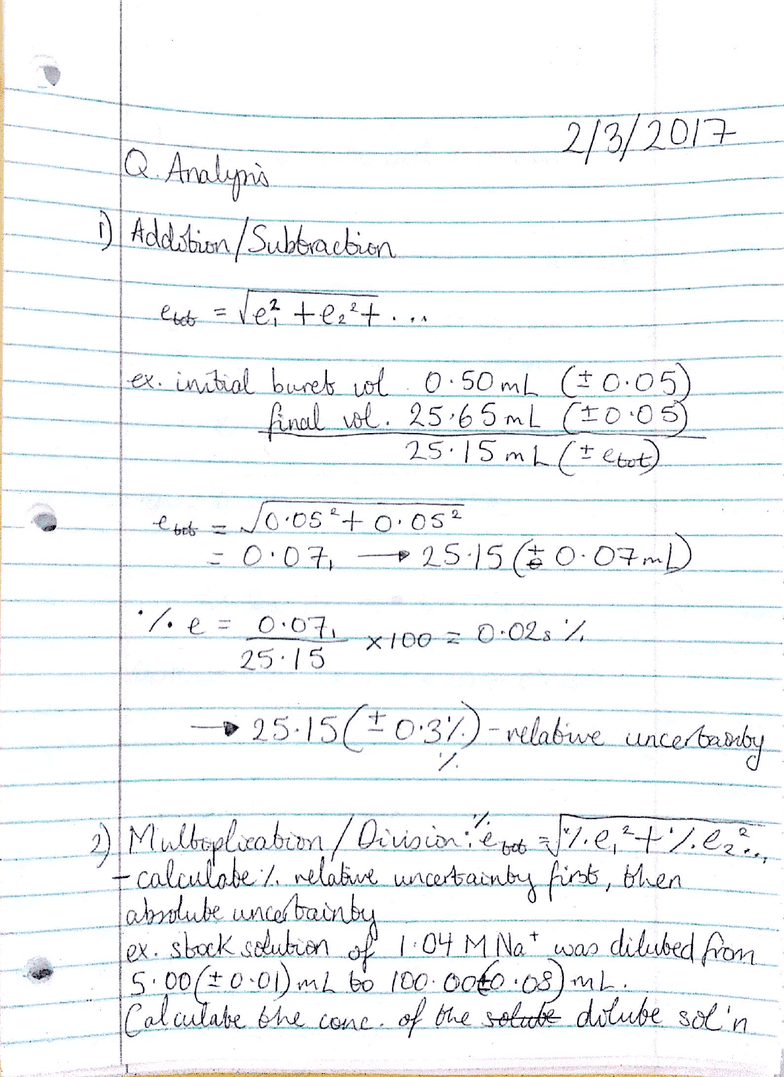 2/3/2017
Q. Analysis
1) Addition/Subtraction
e_tot = √e₁² + e₂² + ...
ex. initial buret vol. 0.50 mL (± 0.05)
final vol. 25.65 mL (± 0.05)
25.15 mL (± e_tot)
e_tot = √0.05² + 0.05²
= 0.07₁ → 25.15 (± 0.07 mL)
% e = 0.07₁ / 25.15 × 100 = 0.02₈ %
→ 25.15 (± 0.3%) - relative uncertainty
%
2) Multiplication / Division: %e_tot = √%e₁² + %e₂² ...
- calculate % relative uncertainty first, then
absolute uncertainty
ex. stock solution of 1.04 M Na⁺ was diluted from
5.00 (± 0.01) mL to 100.00 (± 0.08) mL.
Calculate the conc. of the solute dilute sol'n